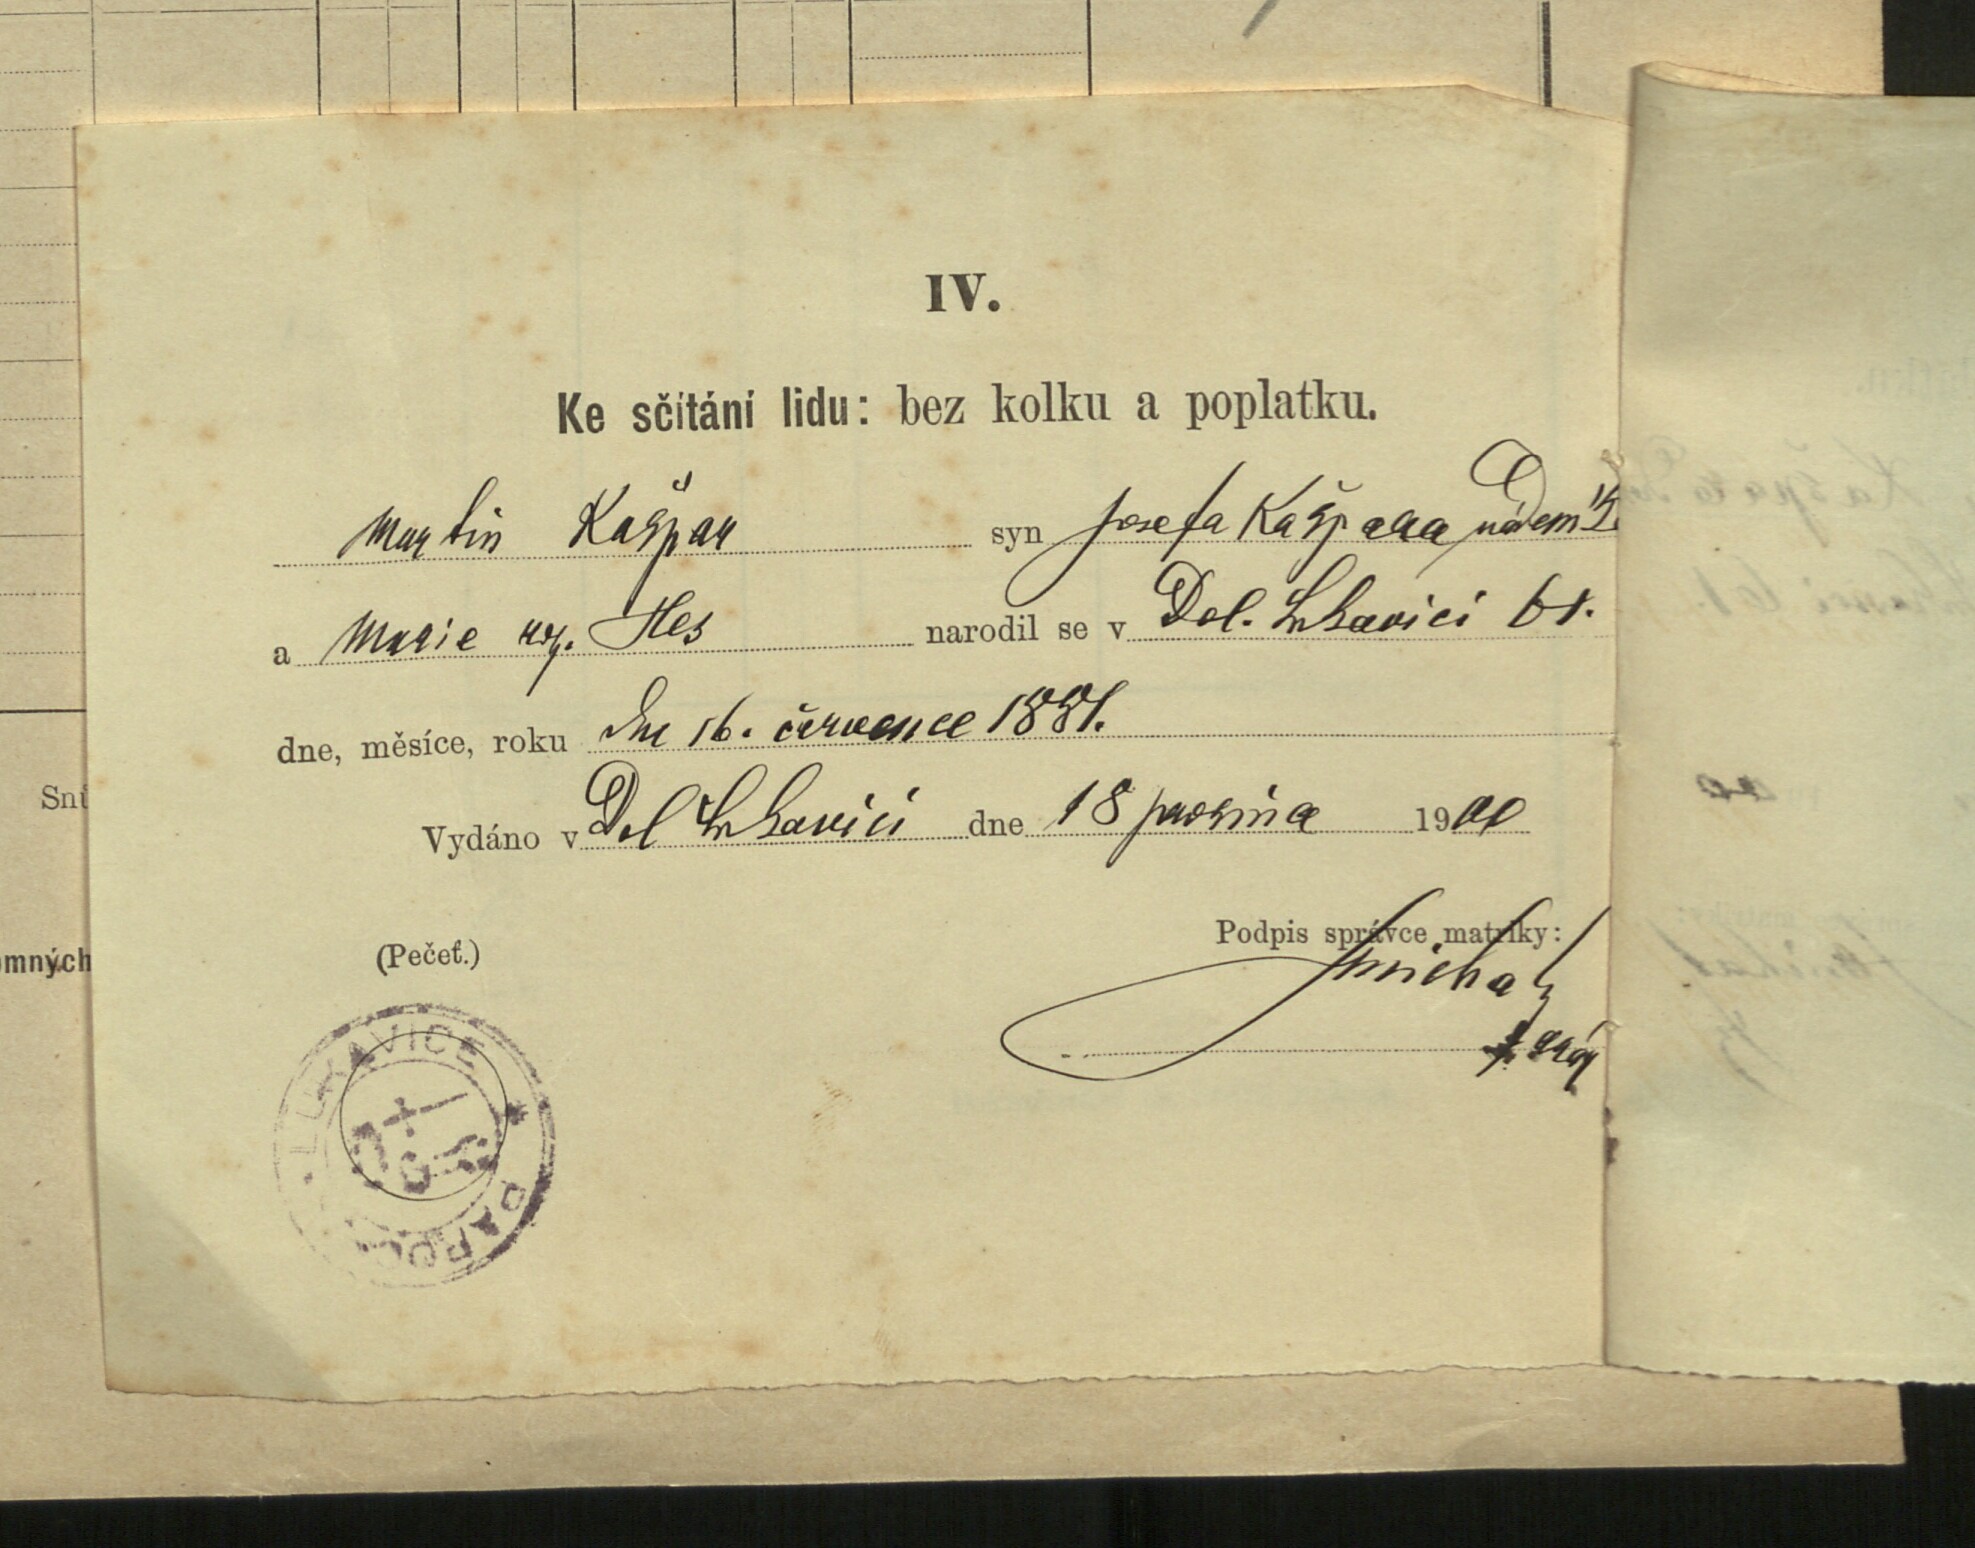 IV.
Ke sčítání lidu: bez kolku a poplatku.
Martin Kašpar syn Josefa Kašpara
a Marie roz. Hes narodil se v Dol. Lukavici 61.
dne, měsíce, roku dne 16. července 1881.
Vydáno v Dol Lukavici dne 18 prosince 1900
(Pečeť.)
Podpis správce matriky:
LUKAVICE
Sní
omných